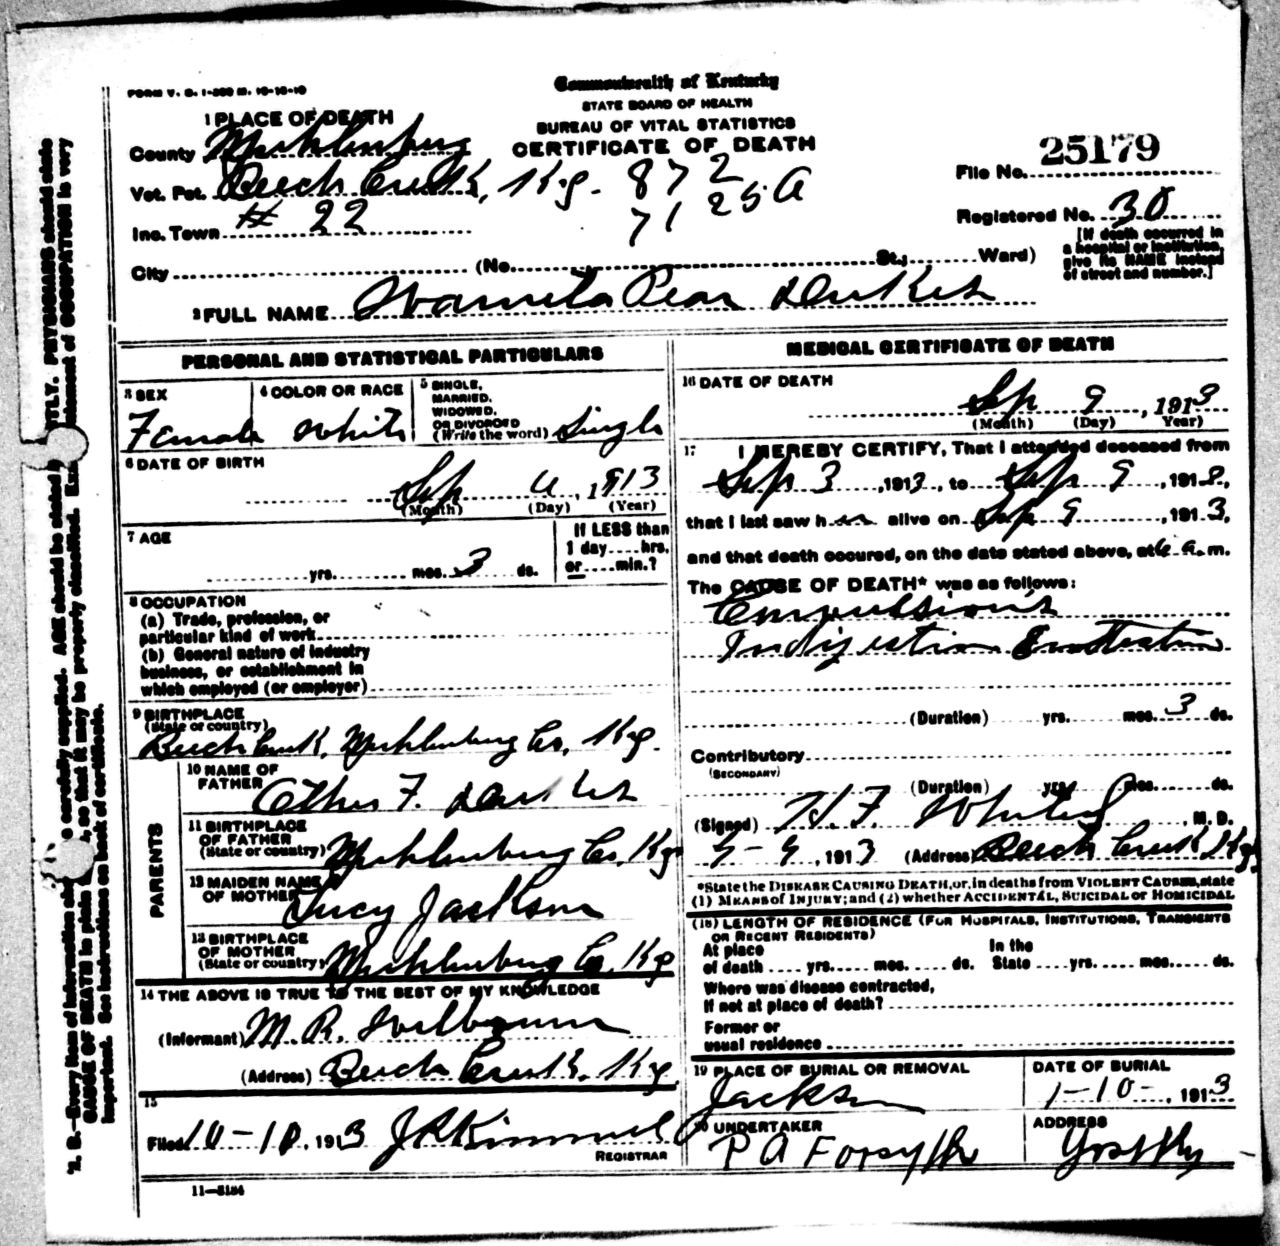 FORM V. S. 1-200 M. 10-10-10
Commonwealth of Kentucky
STATE BOARD OF HEALTH
BUREAU OF VITAL STATISTICS
CERTIFICATE OF DEATH
1 PLACE OF DEATH
County Muhlenburg
Vot. Pct. Beech Creek, Ky. 872
Inc. Town # 22 71 25 A
File No. 25179
Registered No. 30
[If death occurred in
a hospital or institution,
give its NAME instead
of street and number.]
City (No. St.; Ward)
2 FULL NAME Wamita Pear Dukes
PERSONAL AND STATISTICAL PARTICULARS
3 SEX
Female
4 COLOR OR RACE
White
5 SINGLE,
MARRIED,
WIDOWED,
OR DIVORCED
(Write the word) Single
6 DATE OF BIRTH
Sep 6, 1913
(Month) (Day) (Year)
7 AGE
yrs. mos. 3 ds.
If LESS than
1 day....hrs.
or....min.?
8 OCCUPATION
(a) Trade, profession, or
particular kind of work
(b) General nature of industry
business, or establishment in
which employed (or employer)
9 BIRTHPLACE
(State or country)
Beech Creek, Muhlenburg Co, Ky.
PARENTS
10 NAME OF
FATHER F. Dukes
11 BIRTHPLACE
OF FATHER
(State or country) Muhlenburg Co, Ky
12 MAIDEN NAME
OF MOTHER Lucy Jackson
13 BIRTHPLACE
OF MOTHER
(State or country) Muhlenburg Co, Ky
14 THE ABOVE IS TRUE TO THE BEST OF MY KNOWLEDGE
(Informant) M. R. Welborn
(Address) Beech Creek, Ky
15
Filed 10-10, 1913 J R Kimmel
REGISTRAR
11—5184
MEDICAL CERTIFICATE OF DEATH
16 DATE OF DEATH
Sep 9, 1913
(Month) (Day) (Year)
17 I HEREBY CERTIFY, That I attended deceased from
Sep 3, 1913, to Sep 9, 191
that I last saw her alive on Sep 9, 1913,
and that death occured, on the date stated above, at 6 a. m.
The CAUSE OF DEATH* was as follows:
Indigestion
(Duration) yrs. mos. 3 ds.
Contributory
(SECONDARY)
(Duration) yrs. mos. ds.
(Signed) H. F. , M. D.
9-9, 1913 (Address) Beech Creek, Ky.
*State the DISEASE CAUSING DEATH, or, in deaths from VIOLENT CAUSES, state
(1) MEANS of INJURY; and (2) whether ACCIDENTAL, SUICIDAL or HOMICIDAL
(18) LENGTH OF RESIDENCE (FOR HOSPITALS, INSTITUTIONS, TRANSIENTS
OR RECENT RESIDENTS)
At place
of death .... yrs. .... mos. .... ds.
In the
State .... yrs. .... mos. .... ds.
Where was disease contracted,
If not at place of death?
Former or
usual residence
19 PLACE OF BURIAL OR REMOVAL
Jackson
DATE OF BURIAL
1-10-, 1913
20 UNDERTAKER
P A Forsythe
ADDRESS
Yost Ky